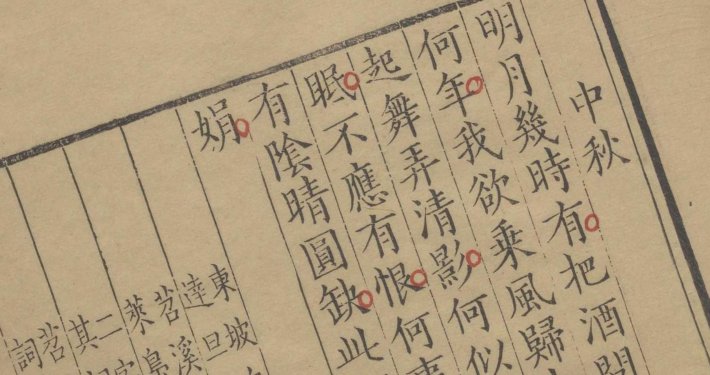 中秋
明月幾時有把酒問
何年我欲乘風歸
起舞弄清影何似
眠不應有恨何事
有陰晴圓缺此
娟
東坡
達旦
苕溪
萊
二
其
苕
詞